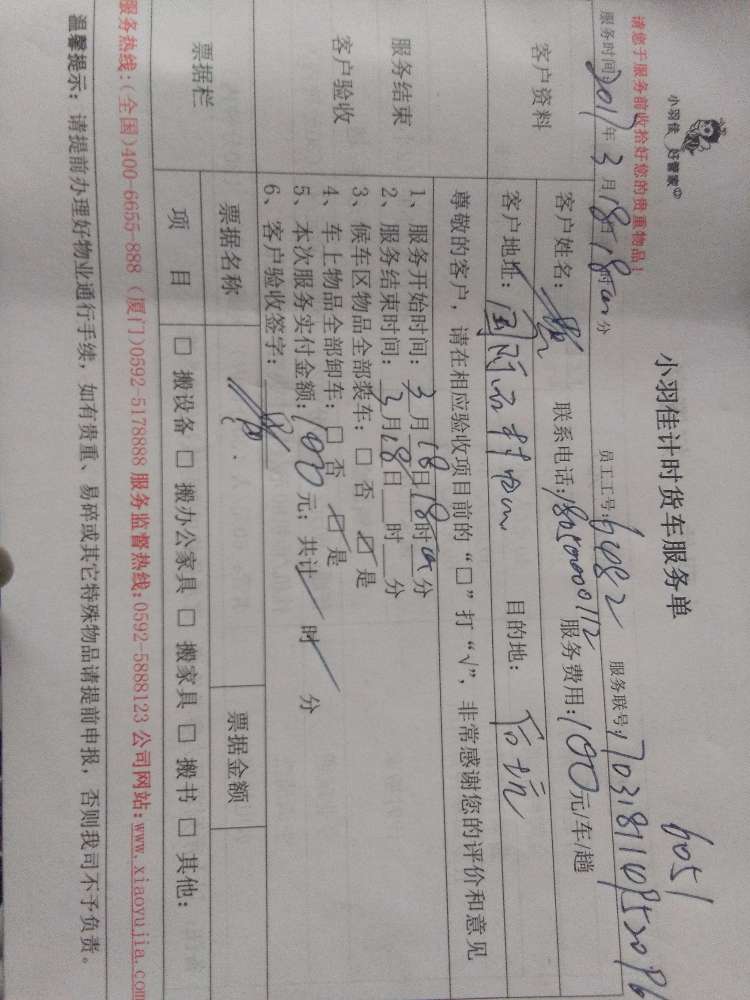 小羽佳 好管家
小羽佳计时货车服务单
6051
请您于服务前收拾好您的贵重物品！
服务时间：2017年3月18日18时00分 员工工号： 服务联号：
客户资料
客户姓名： 联系电话：18050000112 服务费用：100元/车/趟
客户地址： 目的地：后坑
服务结束
客户验收
尊敬的客户，请在相应验收项目前的“□”打“√”，非常感谢您的评价和意见
1、服务开始时间：3月18日18时00分
2、服务结束时间：3月18日 时 分
3、候车区物品全部装车：□ 否 ☑ 是
4、车上物品全部卸车：□ 否 ☑ 是
5、本次服务实付金额：100元；共计 时 分
6、客户验收签字：
票据栏
票据名称 票据金额
项 目 □ 搬设备 □ 搬办公家具 □ 搬家具 □ 搬书 □ 其他：
服务热线：(全国)400-6655-888 (厦门)0592-5178888 服务监督热线：0592-5888123 公司网站：www.xiaoyujia.com
温馨提示：请提前办理好物业通行手续，如有贵重、易碎或其它特殊物品请提前申报，否则我司不予负责。